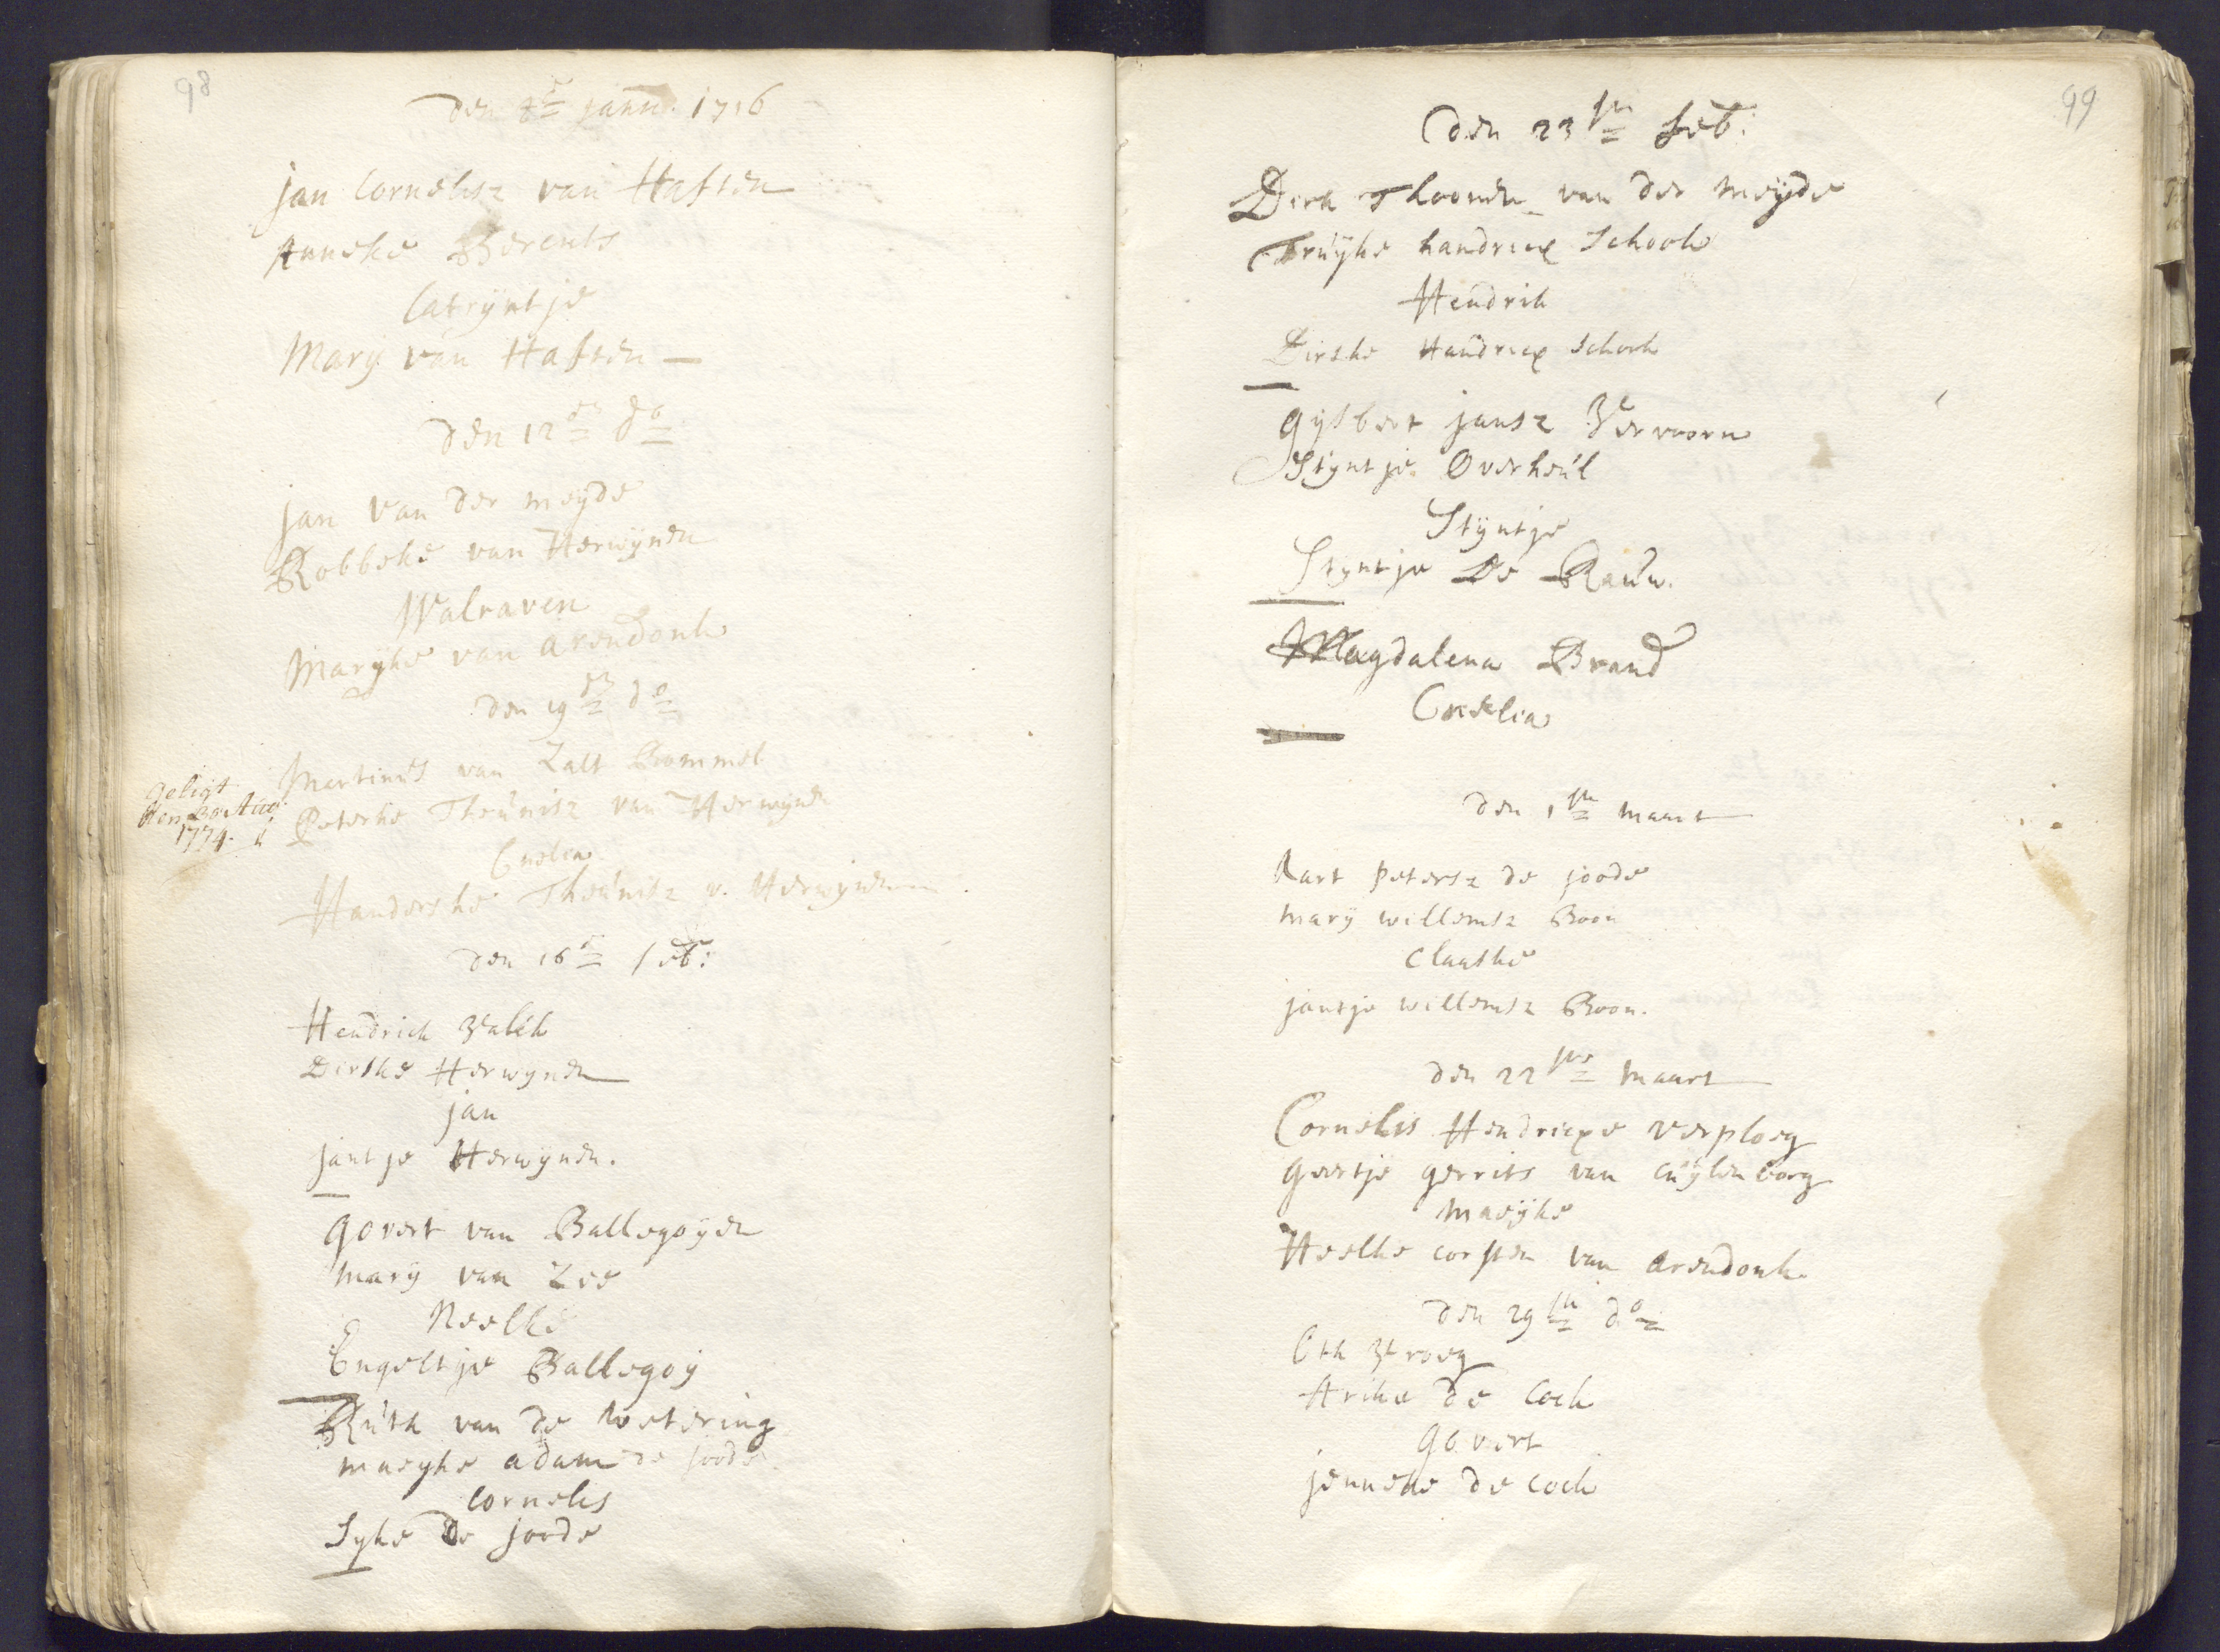 98
den janu. 1716
jan Cornelisz van Haften
Anneke Berents
Catrÿntje
Marÿ van Haften
den 12en do
jan van der meÿde
Robbeke van Herwÿnen
Walraven
Marÿke van arendonk
den 19en do
Martinus van Zalt Bommel
geligt
den Aug:
1774.
Peterke Theunisz van Herwÿnen
Cnelia
Handerske Theunisz v. Herwÿnen
den 16en feb:
Hendrick Valck
Dirske Herwÿnen
jan
jantje Herwÿnen.
govert van Ballegoÿen
marÿ van Zee
Neelke
Engeltje Ballegoÿ
Ruth van de wetering
maeÿke adam de joode
Cornelis
Sÿke de joode
99
den 23en feb:
Dirk Thoonen van der meÿde
Truÿke handricx Schook
Hendrik
Dirske Handricx Schook
gÿsbert jansz Vervoorn
Stÿntje Overheul
Stÿntje
Stÿntje De Rauw.
Magdalena Brand
Cnelia
den 1en maart
Aart petersz de joode
marÿ willemsz Boon
Claaske
jantje willemsz Boon.
den 22en maart
Cornelis Hendricxe verploeg
geertje gerrits van cuÿlenborg
maeÿke
Heelke corsten van arendonk
den 29en do
Oth Vroeg
Arike de Cock
govert
jenneke de cock